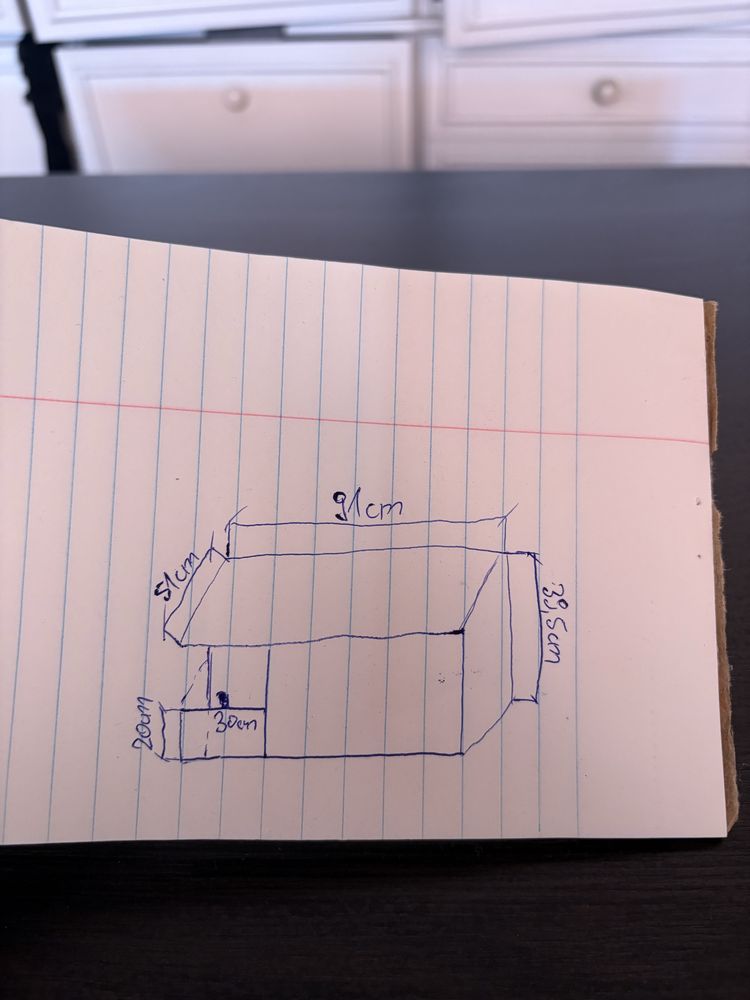 91cm
51cm
39,5cm
30cm
20cm